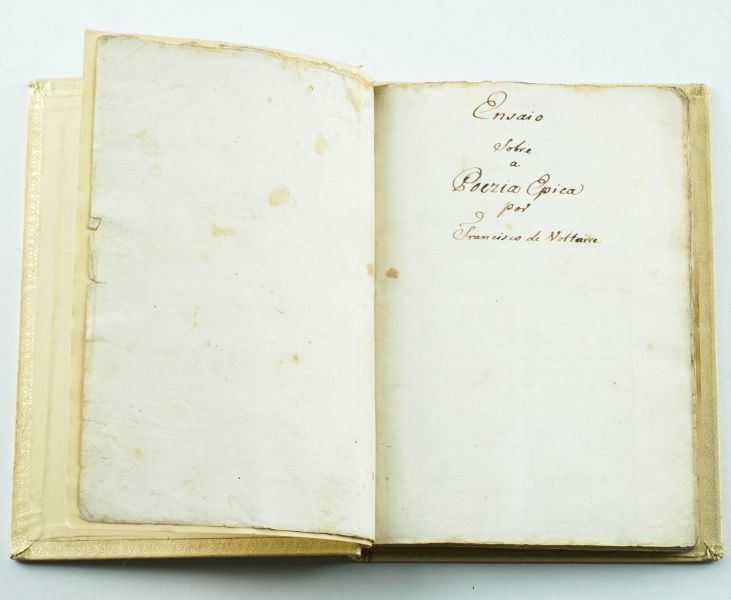 Ensaio
Sobre
a
Poezia Epica
por
Francisco de Voltaire